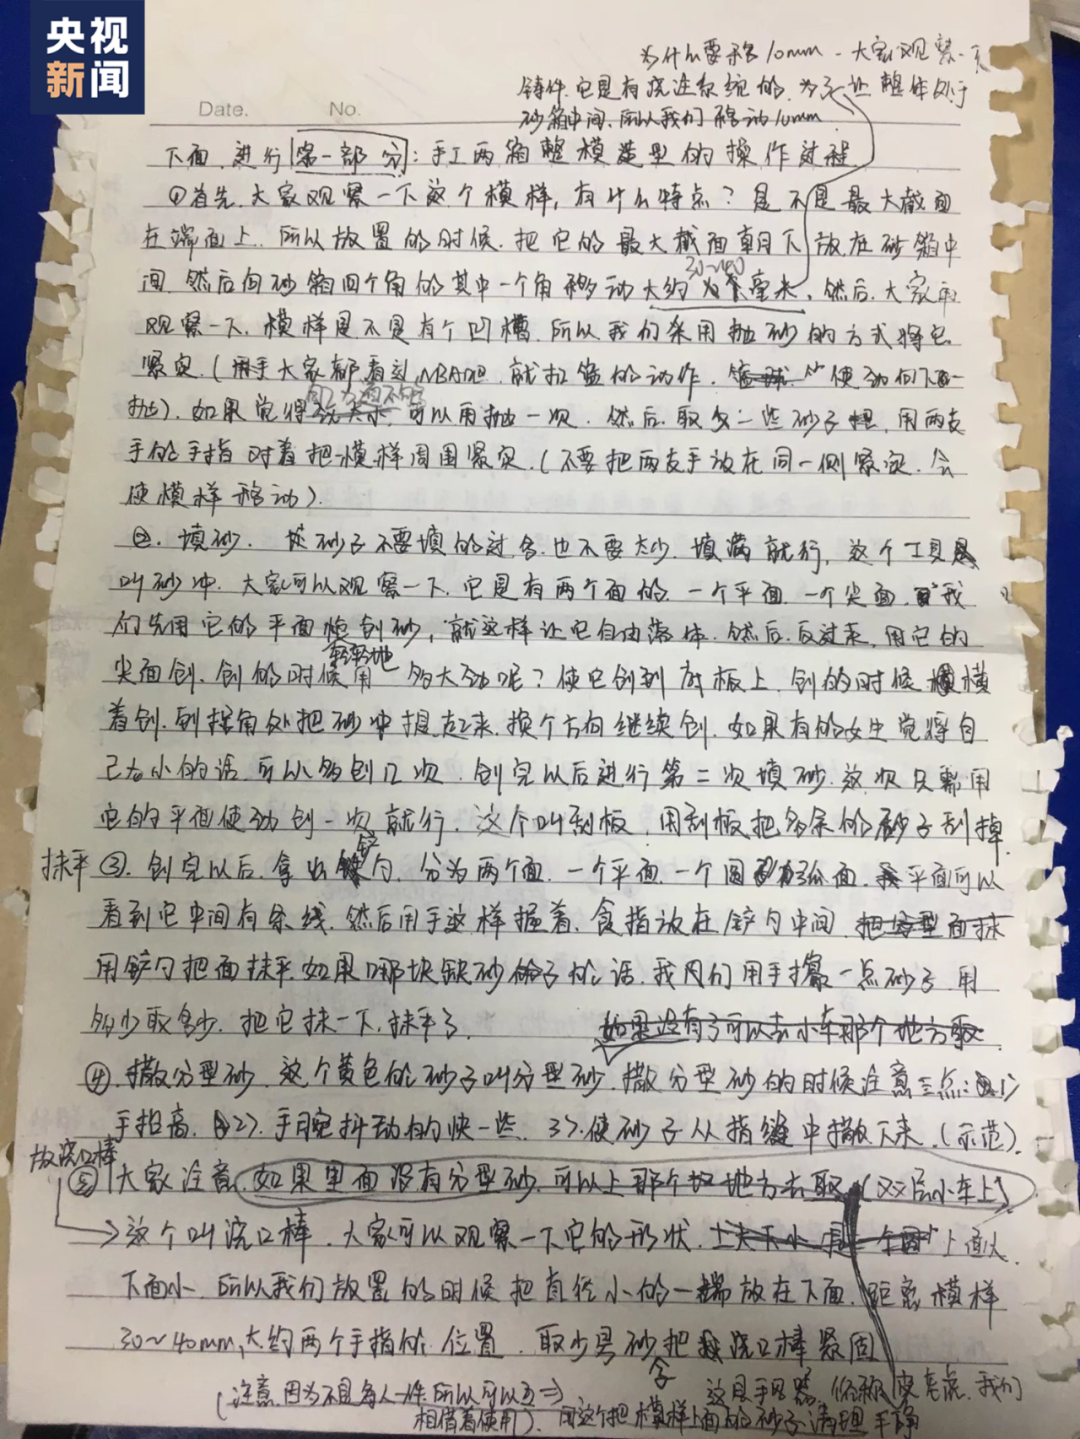 央视
新闻
为什么要移10mm - 大家观察一下
铸件.它是有浇注系统的.为了让整体处于
砂箱中间.所以我们移动10mm
Date. No.
下面.进行第一部分:手工两箱整模造型的操作过程
①首先.大家观察一下这个模样,有什么特点?是不是最大截面
在端面上.所以放置的时候.把它的最大截面朝下放在砂箱中
30~40
间.然后向砂箱四个角的其中一个角移动大约为毫米.然后.大家再
观察一下.模样是不是有个凹槽.所以我们采用抛砂的方式将它
紧实.(用手大家都看过NBA吧.就扣篮的动作.使劲向下一
抛).如果觉得可以再抛一次.然后.取多一些砂子用两支
手的手指对着把模样周围紧实.(不要把两支手放在同一侧紧实.会
使模样移动).
②.填砂.砂子不要填的过多.也不要太少.填满就行.这个工具
叫砂冲.大家可以观察一下.它是有两个面的.一个平面.一个尖面.我
们先用它的平面刨砂,就这样让它自由落体.然后.反过来.用它的
轻轻地
尖面刨.刨的时候用多大劲呢?使它刨到底板上.刨的时候横
着刨.到拐角处把砂冲提起来.换个方向继续刨.如果有的女生觉得自
己力小的话.可以多刨几次.刨完以后进行第二次填砂.这次只需用
它的平面使劲刨一次就行.这个叫刮板.用刮板把多余的砂子刮掉.
抹平③.刨完以后.拿出铲勺.分为两个面.一个平面.一个圆弧面.平面可以
看到它中间有条线.然后用手这样握着.食指放在铲勺中间.把分型面抹
用铲勺把面抹平.如果哪块缺砂子的话.我们用手撮一点砂子.用
多少取多少.把它抹一下.抹平了. 如果没有了可以去小车那个地方取
④.撒分型砂.这个黄色的砂子叫分型砂.撒分型砂的时候注意三点:1>
手抬高.2>.手腕抖动的快一些.3>.使砂子从指缝中撒下来.(示范).
放浇口棒
⑤大家注意.如果里面没有分型砂.可以上那个地方去取(双层小车上)
这个叫浇口棒.大家可以观察一下它的形状.上面大
下面小.所以我们放置的时候把直径小的一端放在下面.距离模样
30~40mm,大约两个手指的位置.取少量砂把浇口棒紧固
(注意.因为不是每人一件.所以可以互相借着使用). 这是手风器.俗称皮老虎.我们
用这个把模样上面的砂子清理干净